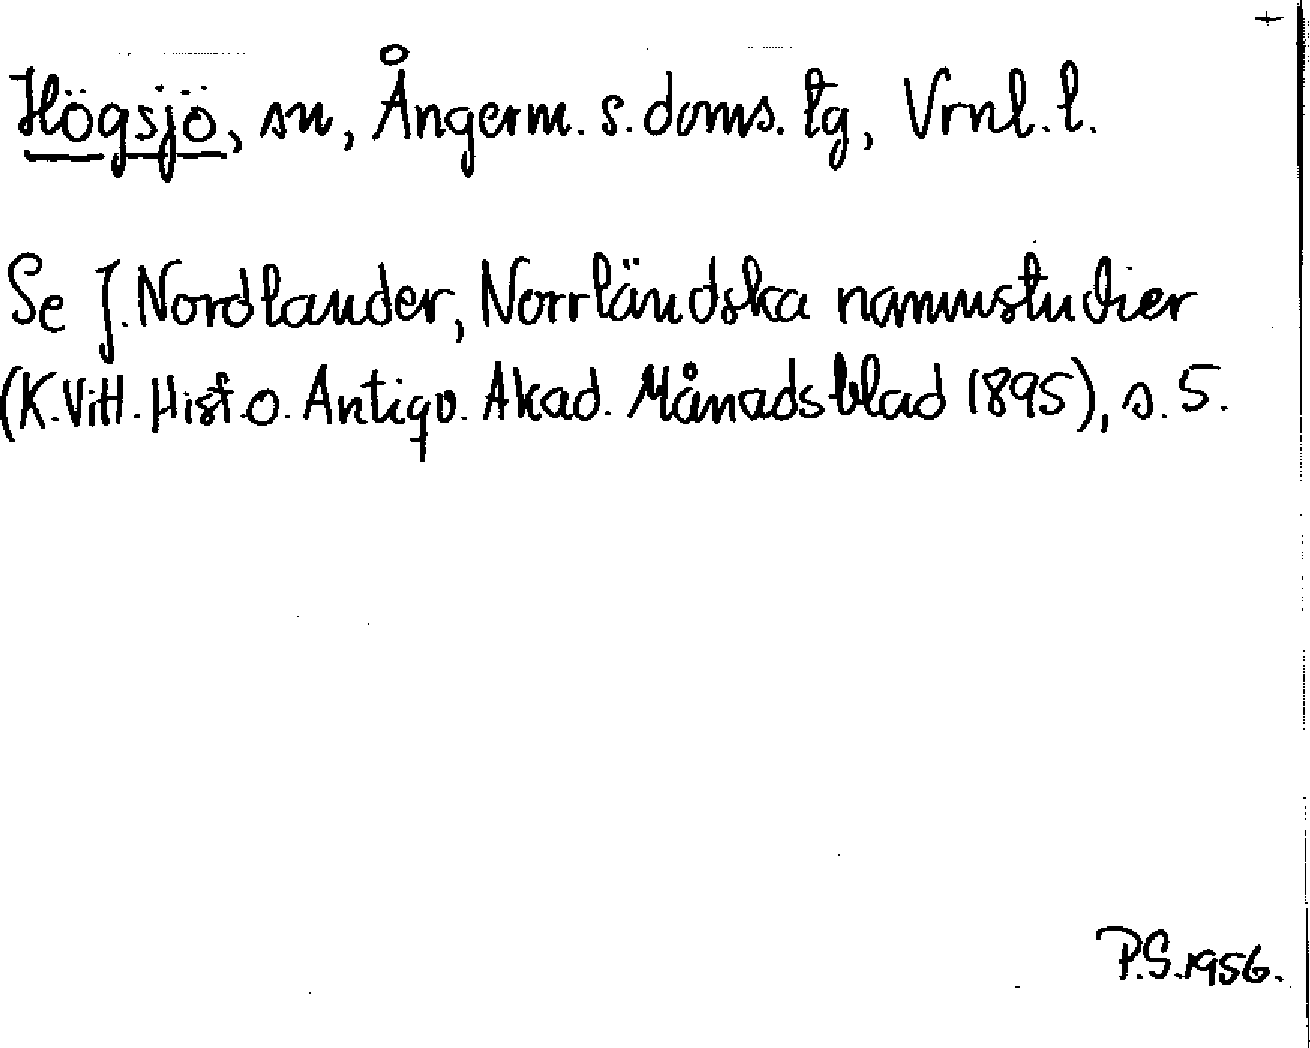 Högsjö, sn, Ångerm. s. doms. tg, Vrnl. l.
Se J. Nordlander, Norrländska namnstudier
(K. Vitt. Hist. o. Antiqv. Akad. Månadsblad 1895), s. 5.
P.S. 1956.